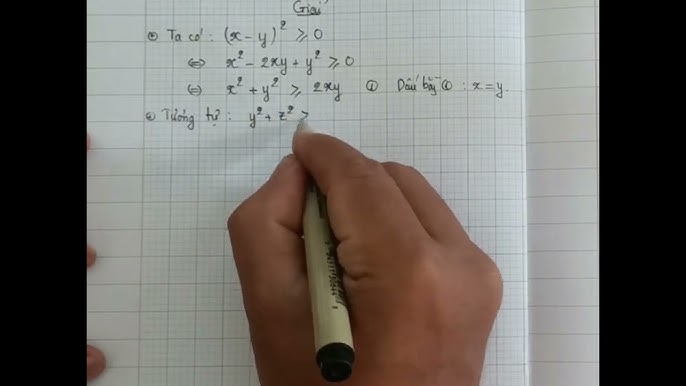 Giải
Ta có : (x - y)² ≥ 0
⇔ x² - 2xy + y² ≥ 0
⇔ x² + y² ≥ 2xy ① Dấu bằng ① : x = y.
Tương tự : y² + z² >